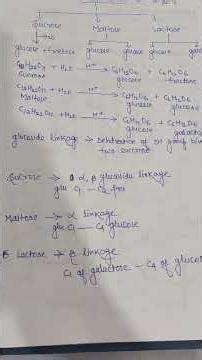 Sucrose Maltose Lactose
↓ H2O
glucose + fructose glucose glucose glucose
C12H22O11 + H2O H+→ C6H12O6 + C6H12O6
Sucrose glucose fructose
C12H22O11 + H2O H+→ C6H12O6 + C6H12O6
Maltose glucose glucose
C12H22O11 + H2O H+→ C6H12O6 + C6H12O6
glucose
glucosidic linkage → of
two sucrose
Sucrose → α, β glucosidic linkage
glu C1 — C2
Maltose → α linkage
glu C1 — C4 glucose
Lactose → β linkage
C1 of galactose — C4 of